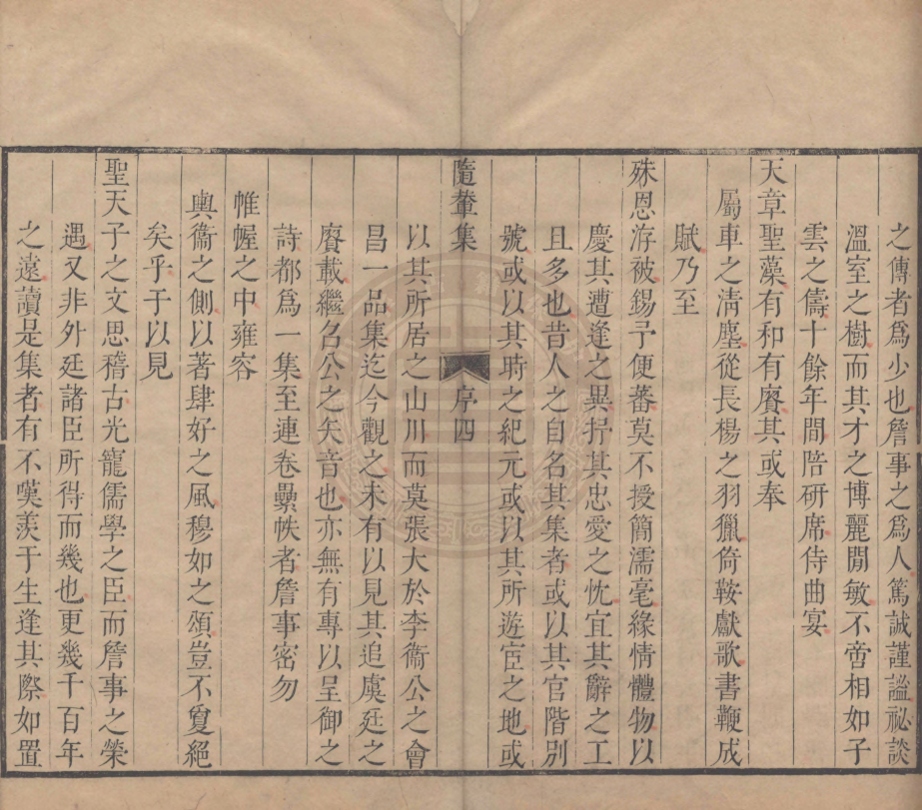 之傳者爲少也詹事之爲人篤誠謹謐祕談
溫室之樹而其才之博麗閒敏不啻相如子
雲之儔十餘年間陪硏席侍曲宴
天章聖藻有和有賡其或奉
屬車之淸塵從長楊之羽獵倚鞍獻歌書鞭成
賦乃至
殊恩洊被錫予便蕃莫不授簡濡毫緣情體物以
慶其遭逢之異抒其忠愛之忱宜其辭之工
且多也昔人之自名其集者或以其官階別
號或以其時之紀元或以其所遊宦之地或
隨輦集
序四
以其所居之山川而莫張大於李衞公之會
昌一品集迄今觀之未有以見其追虞廷之
賡載繼召公之矢音也亦無有專以呈御之
詩都爲一集至連卷纍帙者詹事密勿
帷幄之中雍容
輿衞之側以著肆好之風穆如之頌豈不敻絕
矣乎于以見
聖天子之文思稽古光寵儒學之臣而詹事之榮
遇又非外廷諸臣所得而幾也更幾千百年
之遠讀是集者有不嘆羨于生逢其際如置